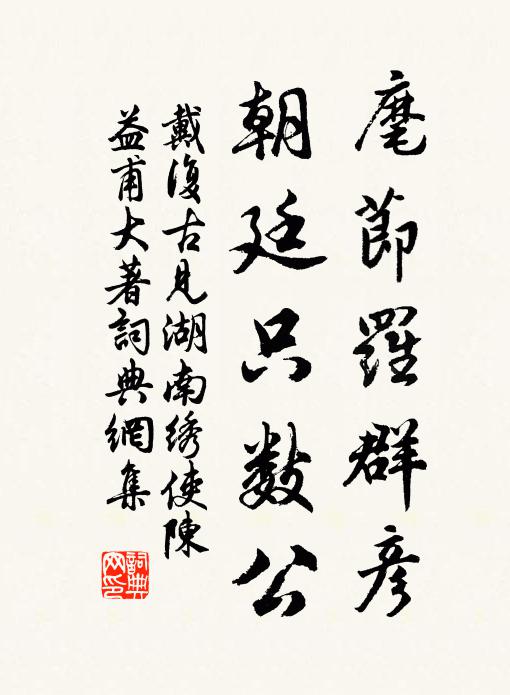 麾節羅群彦
朝廷只数公
戴復古見湖南绣使陳
益甫大著詞典網集
詞典网印